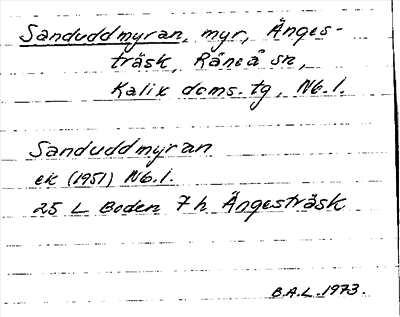 Sanduddmyran, myr, Änges-
träsk, Råneå sn,
Kalix doms.tg, Nb.l.
Sanduddmyran
ek (1951) Nb.l.
25 L Boden 7 h Ängesträsk
B.A.L. 1973.